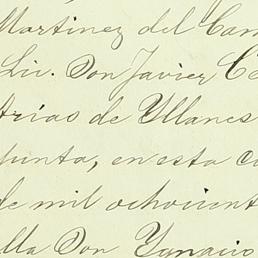 Martinez del Cam
Lic. Don Javier Ce
trias de Yllanes
junta, en esta c
de mil ochocient
lla Don Ygnacio